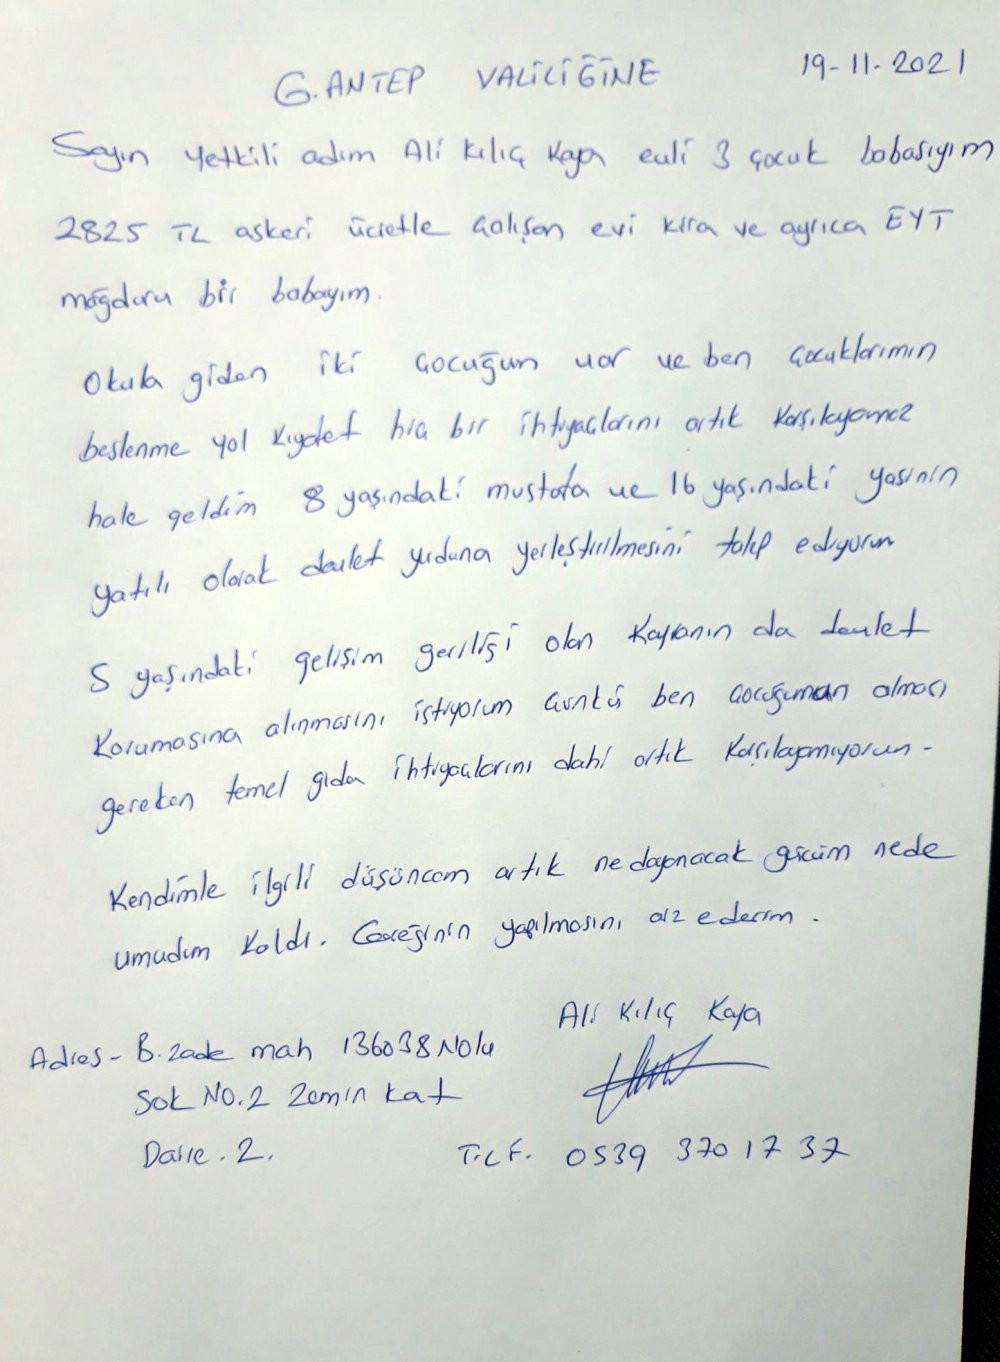 G.ANTEP VALİLİĞİNE 19-11-2021
Sayın yetkili adım Ali Kılıç Kaya evli 3 çocuk babasıyım
2825 TL askeri ücretle çalışan evi kira ve ayrıca EYT
mağduru bir babayım.
Okula giden iki çocuğum var ve ben çocuklarımın
beslenme yol kıyafet hiç bir ihtiyaçlarını artık karşılayamaz
hale geldim 8 yaşındaki mustafa ve 16 yaşındaki yasinin
yatılı olarak devlet yurduna yerleştirilmesini talep ediyorum
5 yaşındaki gelişim geriliği olan Kayranın da devlet
korumasına alınmasını istiyorum çünkü ben çocuğuman alması
gereken temel gıda ihtiyaçlarını dahi artık karşılayamıyorum -
Kendimle ilgili düşüncem artık ne dayanacak gücüm nede
umudum kaldı. Gereğinin yapılmasını arz ederim.
Ali Kılıç Kaya
Adres - B.zade mah 136038 Nolu
Sok No.2 Zemin kat
Daire . 2. TLF. 0539 370 17 37